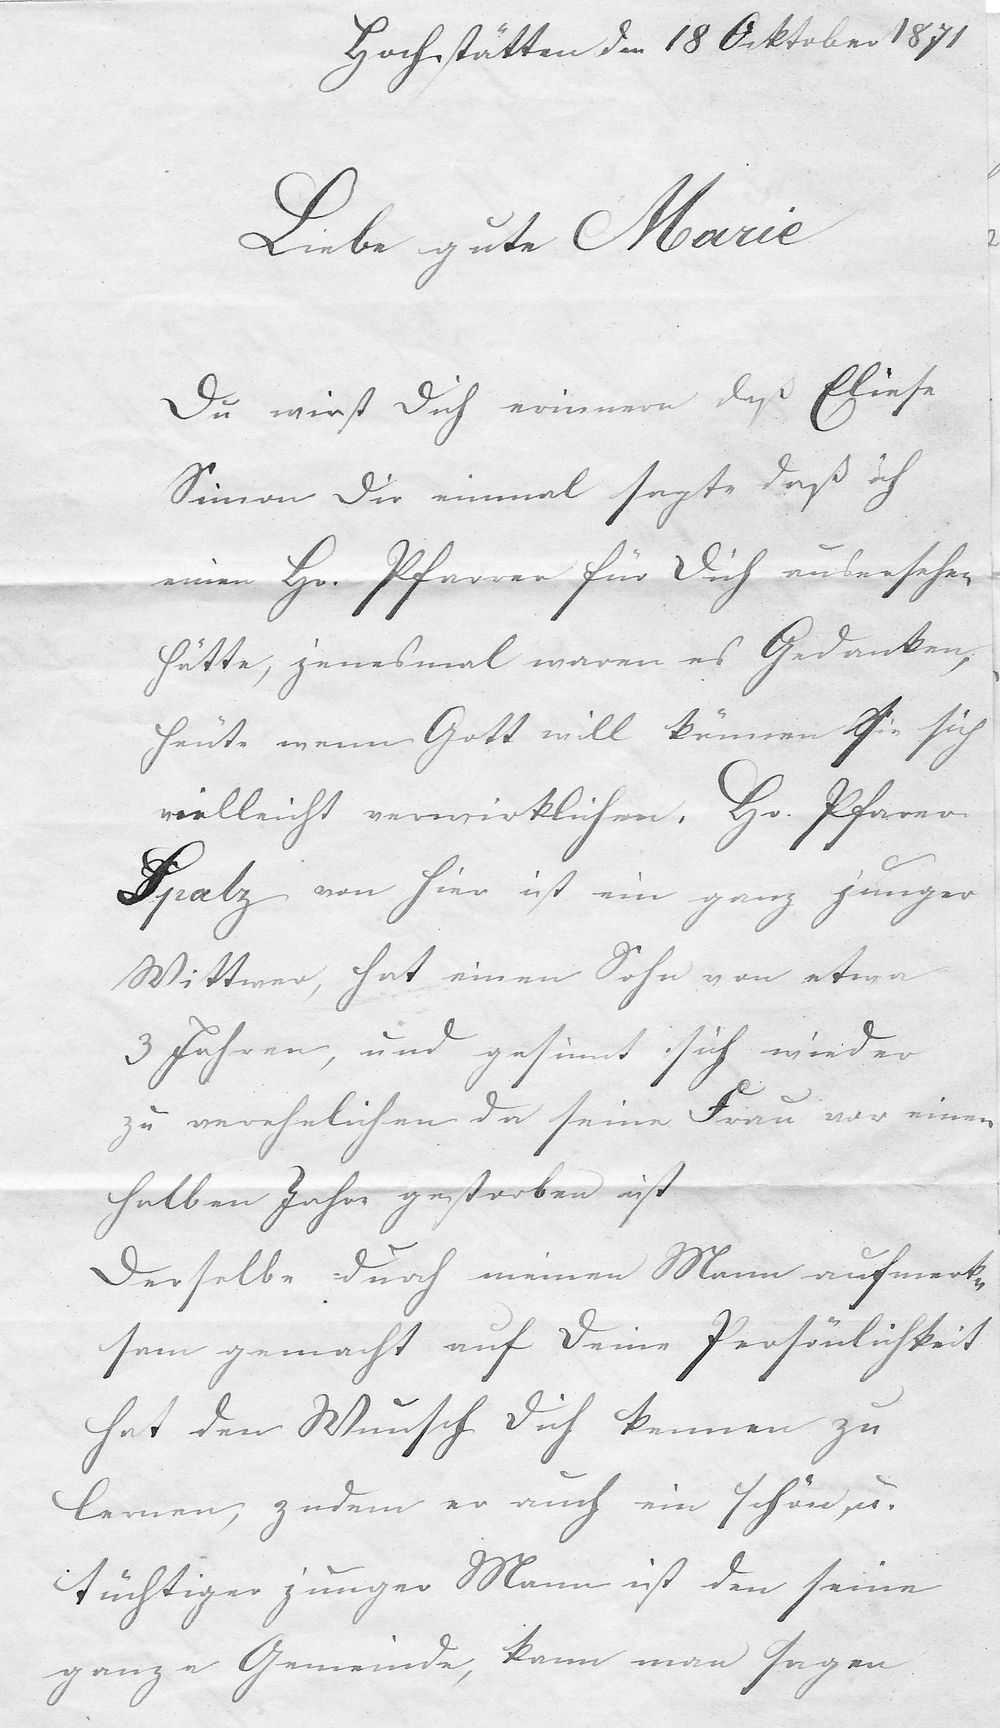 Hochstätten den 18 Ocktober 1871
Liebe gute Marie
Du wirst Dich erinnern daß Eliese
Simon Dir einmal sagte daß ich
einen Hr. Pfarrer für Dich ausersehen
hätte, jenesmal waren es Gedanken,
heute wenn Gott will können Sie sich
vielleicht verwirklichen. Hr. Pfarer
Spatz von hier ist ein ganz junger
Wittwer, hat einen Sohn von etwa
3 Jahren, und gesinnt sich wieder
zu verehelichen da seine Frau vor einen
halben Jahr gestorben ist
Derselbe durch meinen Mann aufmerk=
sam gemacht auf Deine Persönlichkeit
hat den Wunsch Dich kennen zu
lernen, zudem er auch ein schön u.
tüchtiger junger Mann ist den seine
ganze Gemeinde, kann man sagen